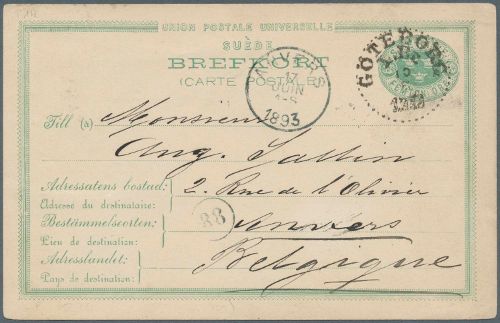 UNION POSTALE UNIVERSELLE
SUÈDE
BREFKORT
(CARTE POSTALE)
GÖTEBORG
ANVERS
17
JUIN
1893
Till (à) Monsieur
Aug.
Adressatens bostad: 2. Rue de l'Olivier
Adresse du destinataire:
Bestämmelseorten: Anvers
Lieu de destination:
88
Adresslandet: Belgique
Pays de destination: